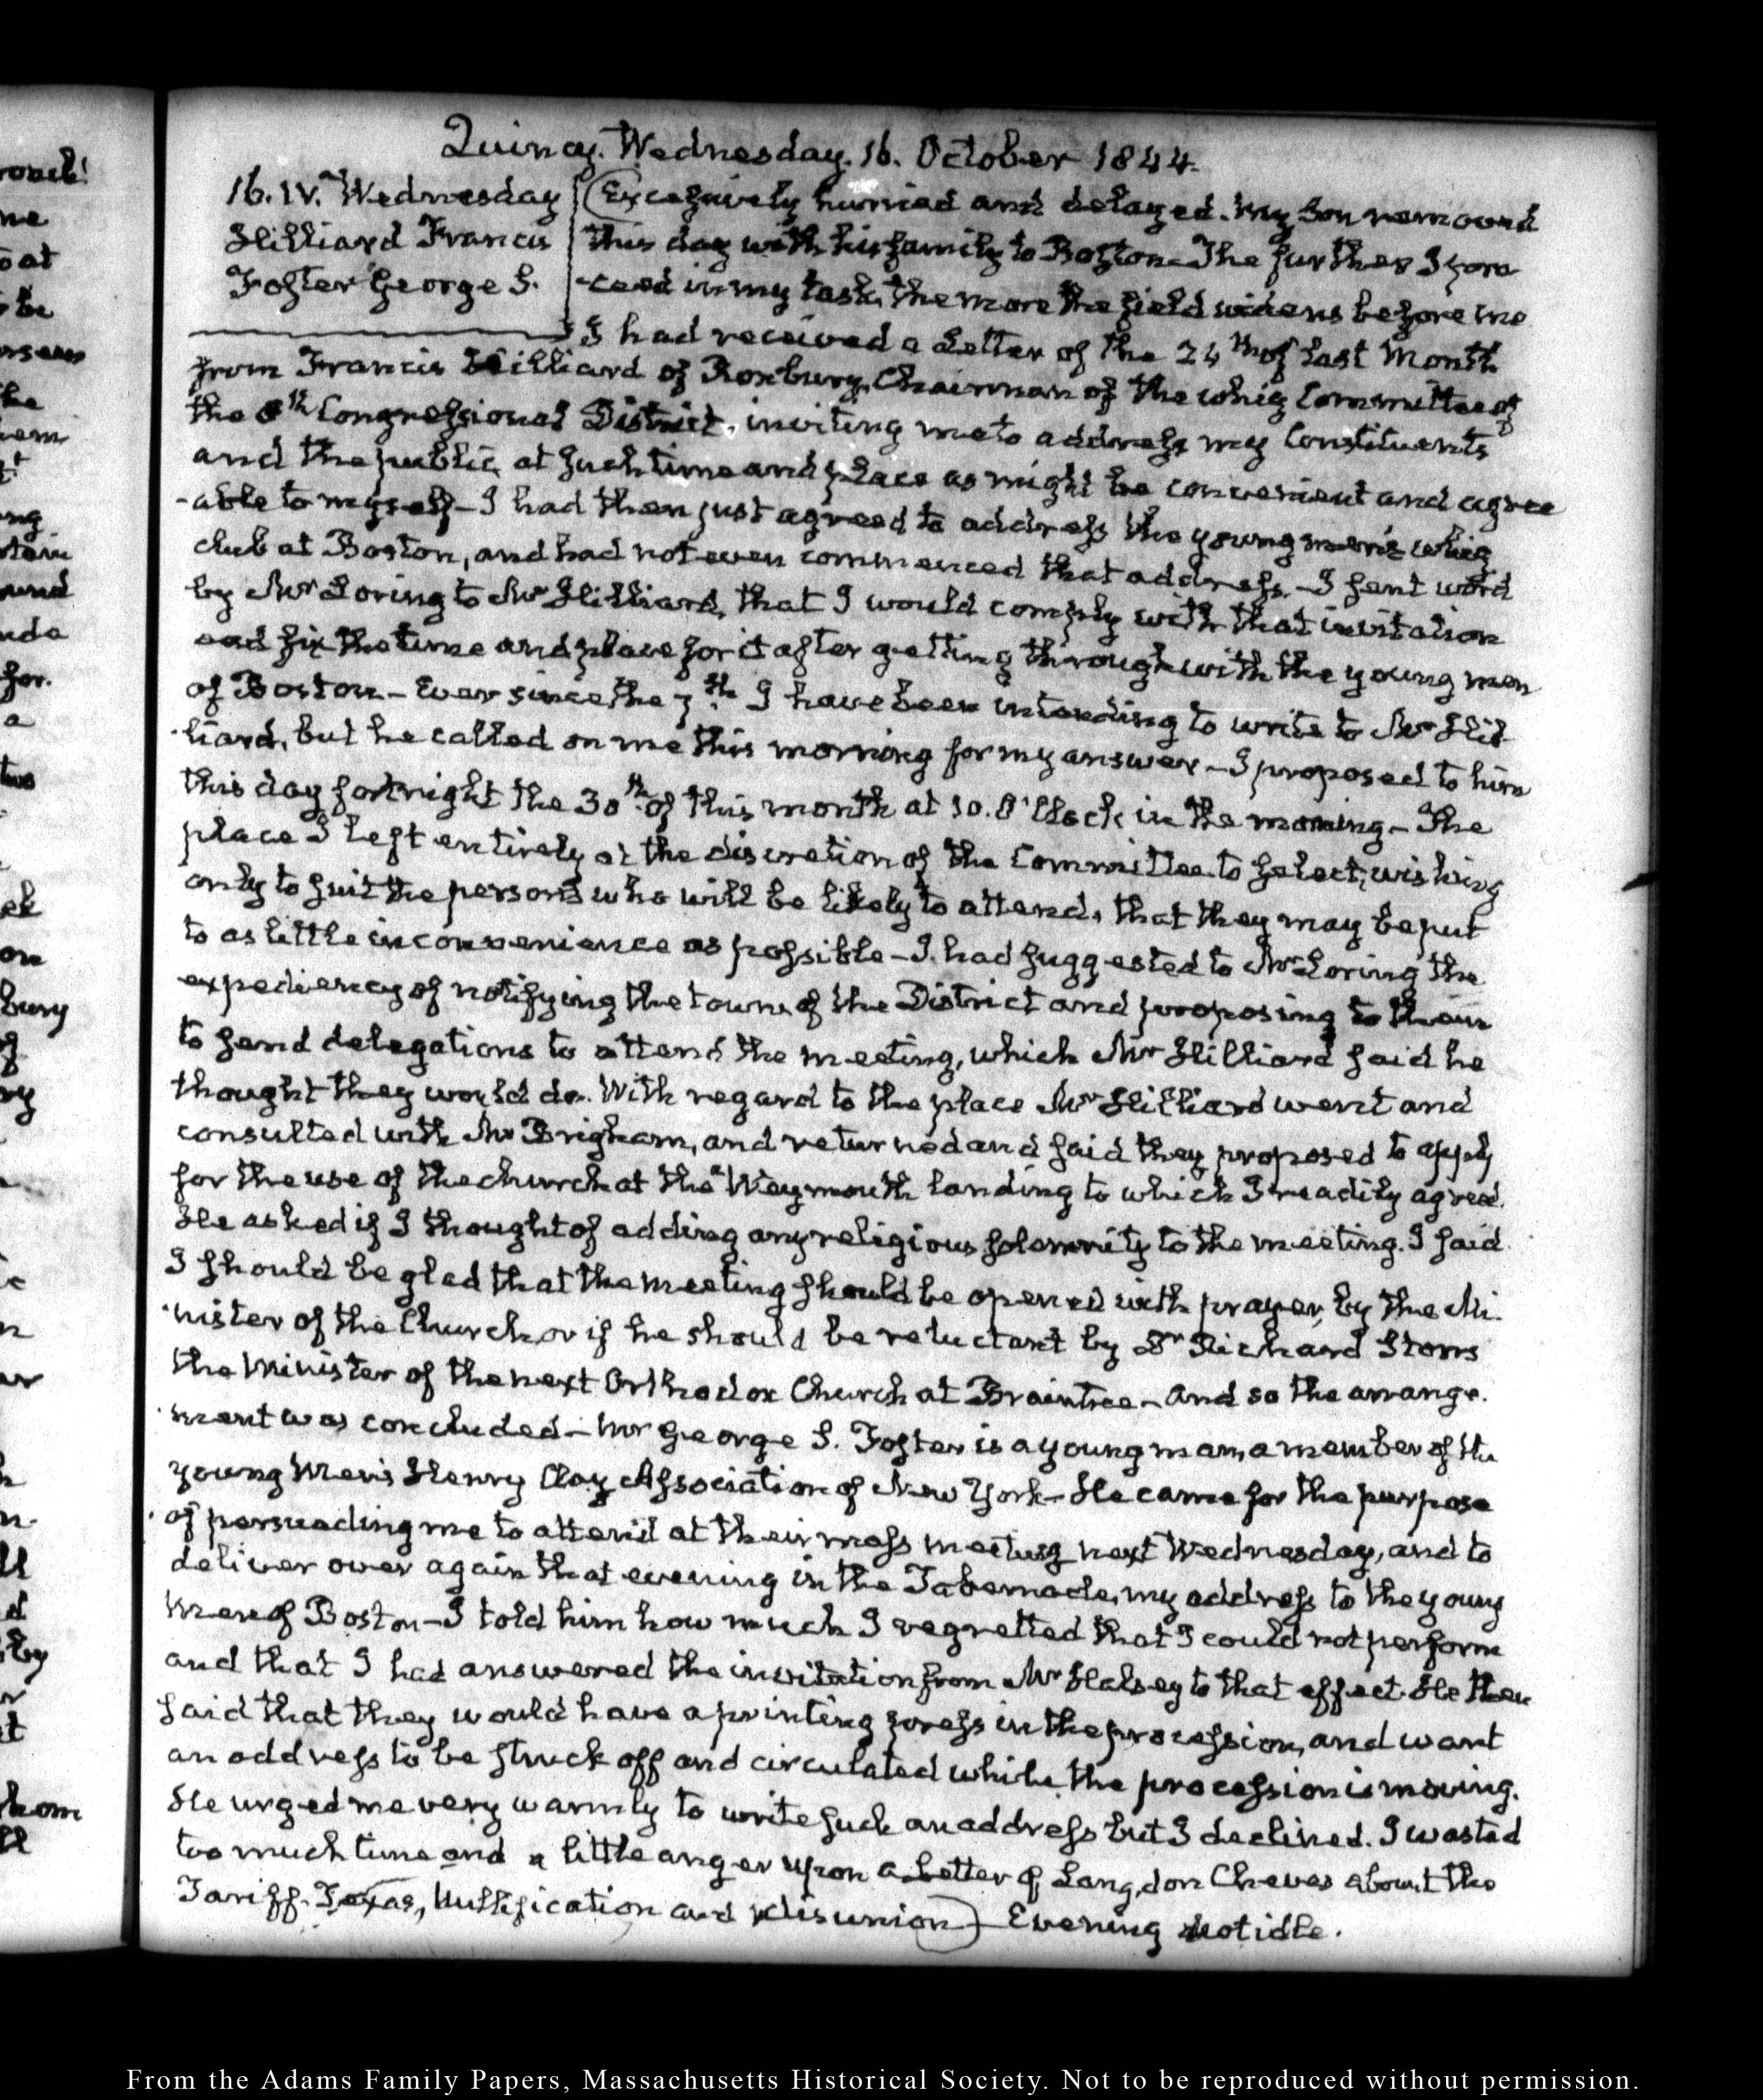 Quincy. Wednesday. 16. October 1844.
16. IV. Wednesday
Hilliard Francis
Foster George S.
Excessively hurried and delayed. My Son removed
this day with his family to Boston. The further I pro
-ceed in my task, the more the field widens before me
I had received a Letter of the 24th of last Month
from Francis Hilliard of Roxbury, Chairman of the whig Committee of
the 8th Congressional District, inviting me to address my Constituents
and the public, at such time and place as might be convenient and agree
-able to myself – I had then just agreed to address the young men's whig
club at Boston, and had not even commenced that address. – I sent word
by Mr Loring to Mr Hilliard, that I would comply with that invitation
and fix the time and place for it after getting through with the young men
of Boston – Ever since the 7th I have been intending to write to Mr Hil-
liard, but he called on me this morning for my answer – I proposed to him
this day fortnight the 30th of this month at 10. O'Clock in the morning – The
place I left entirely at the discretion of the Committee to select, wishing
only to suit the persons who will be likely to attend, that they may be put
to as little inconvenience as possible – I had suggested to Mr Loring the
expediency of notifying the towns of the District and proposing to them
to send delegations to attend the meeting, which Mr Hilliard said he
thought they would do. With regard to the place Mr Hilliard went and
consulted with Mr Brigham, and returned and said they proposed to apply
for the use of the church at the Weymouth landing to which I readily agreed.
He asked if I thought of adding any religious solemnity to the meeting. I said
I should be glad that the meeting should be opened with prayer, by the Mi-
-nister of the Church or if he should be reluctant by Dr Richard Storrs
the Minister of the next Orthodox Church at Braintree – and so the arrange-
-ment was concluded – Mr George S. Foster is a young man, a member of the
young Men's Henry Clay Association of New York – He came for the purpose
of persuading me to attend at their mass meeting next Wednesday, and to
deliver over again that evening in the Tabernacle, my address to the young
Men of Boston – I told him how much I regretted that I could not perform
and that I had answered the invitation from Mr Halsey to that effect. He then
said that they would have a printing press in the procession, and want
an address to be struck off and circulated while the procession is moving.
He urged me very warmly to write such an address but I declined. I wasted
too much time and a little anger upon a Letter of Langdon Cheves about the
Tariff. Texas, Nullification and disunion) – Evening not idle.
From the Adams Family Papers, Massachusetts Historical Society. Not to be reproduced without permission.